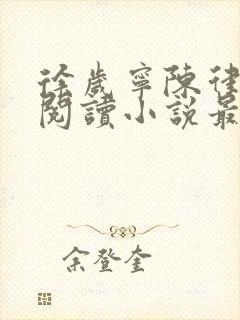 徐歲寧陳律
閱讀小說最
余登奎